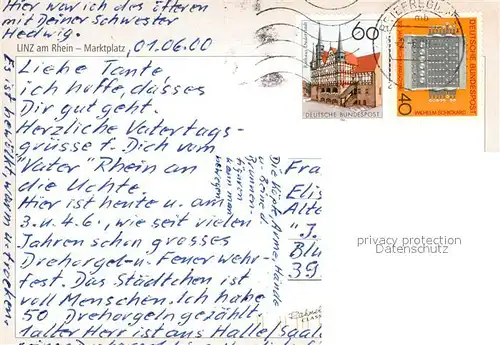 Hier war ich des öfteren
mit Deiner Schwester
Hedwig.
LINZ am Rhein – Marktplatz
01.06.00
Liebe Tante
ich hoffe, dass es
Dir gut geht.
Herzliche Vatertags-
grüsse f. Dich vom
"Vater" Rhein an
die Uchte.
Hier ist heute u. am
3. u. 4.6., wie seit vielen
Jahren schon grosses
Drehorgel- u. Feuerwehr-
fest. Das Städtchen ist
voll Menschen. Ich habe
50 Drehorgeln gezählt.
1 alter Herr ist aus Halle/Saale
Es ist bewölkt, warm u. trocken.
Die Köpfe, Arme, Hände
u. Beine d.
kann man
60
DEUTSCHE BUNDESPOST
DEUTSCHE BUNDESPOST
40
Frau
Elis
Alte
"J.
Blu
39
privacy protection
Datenschutz